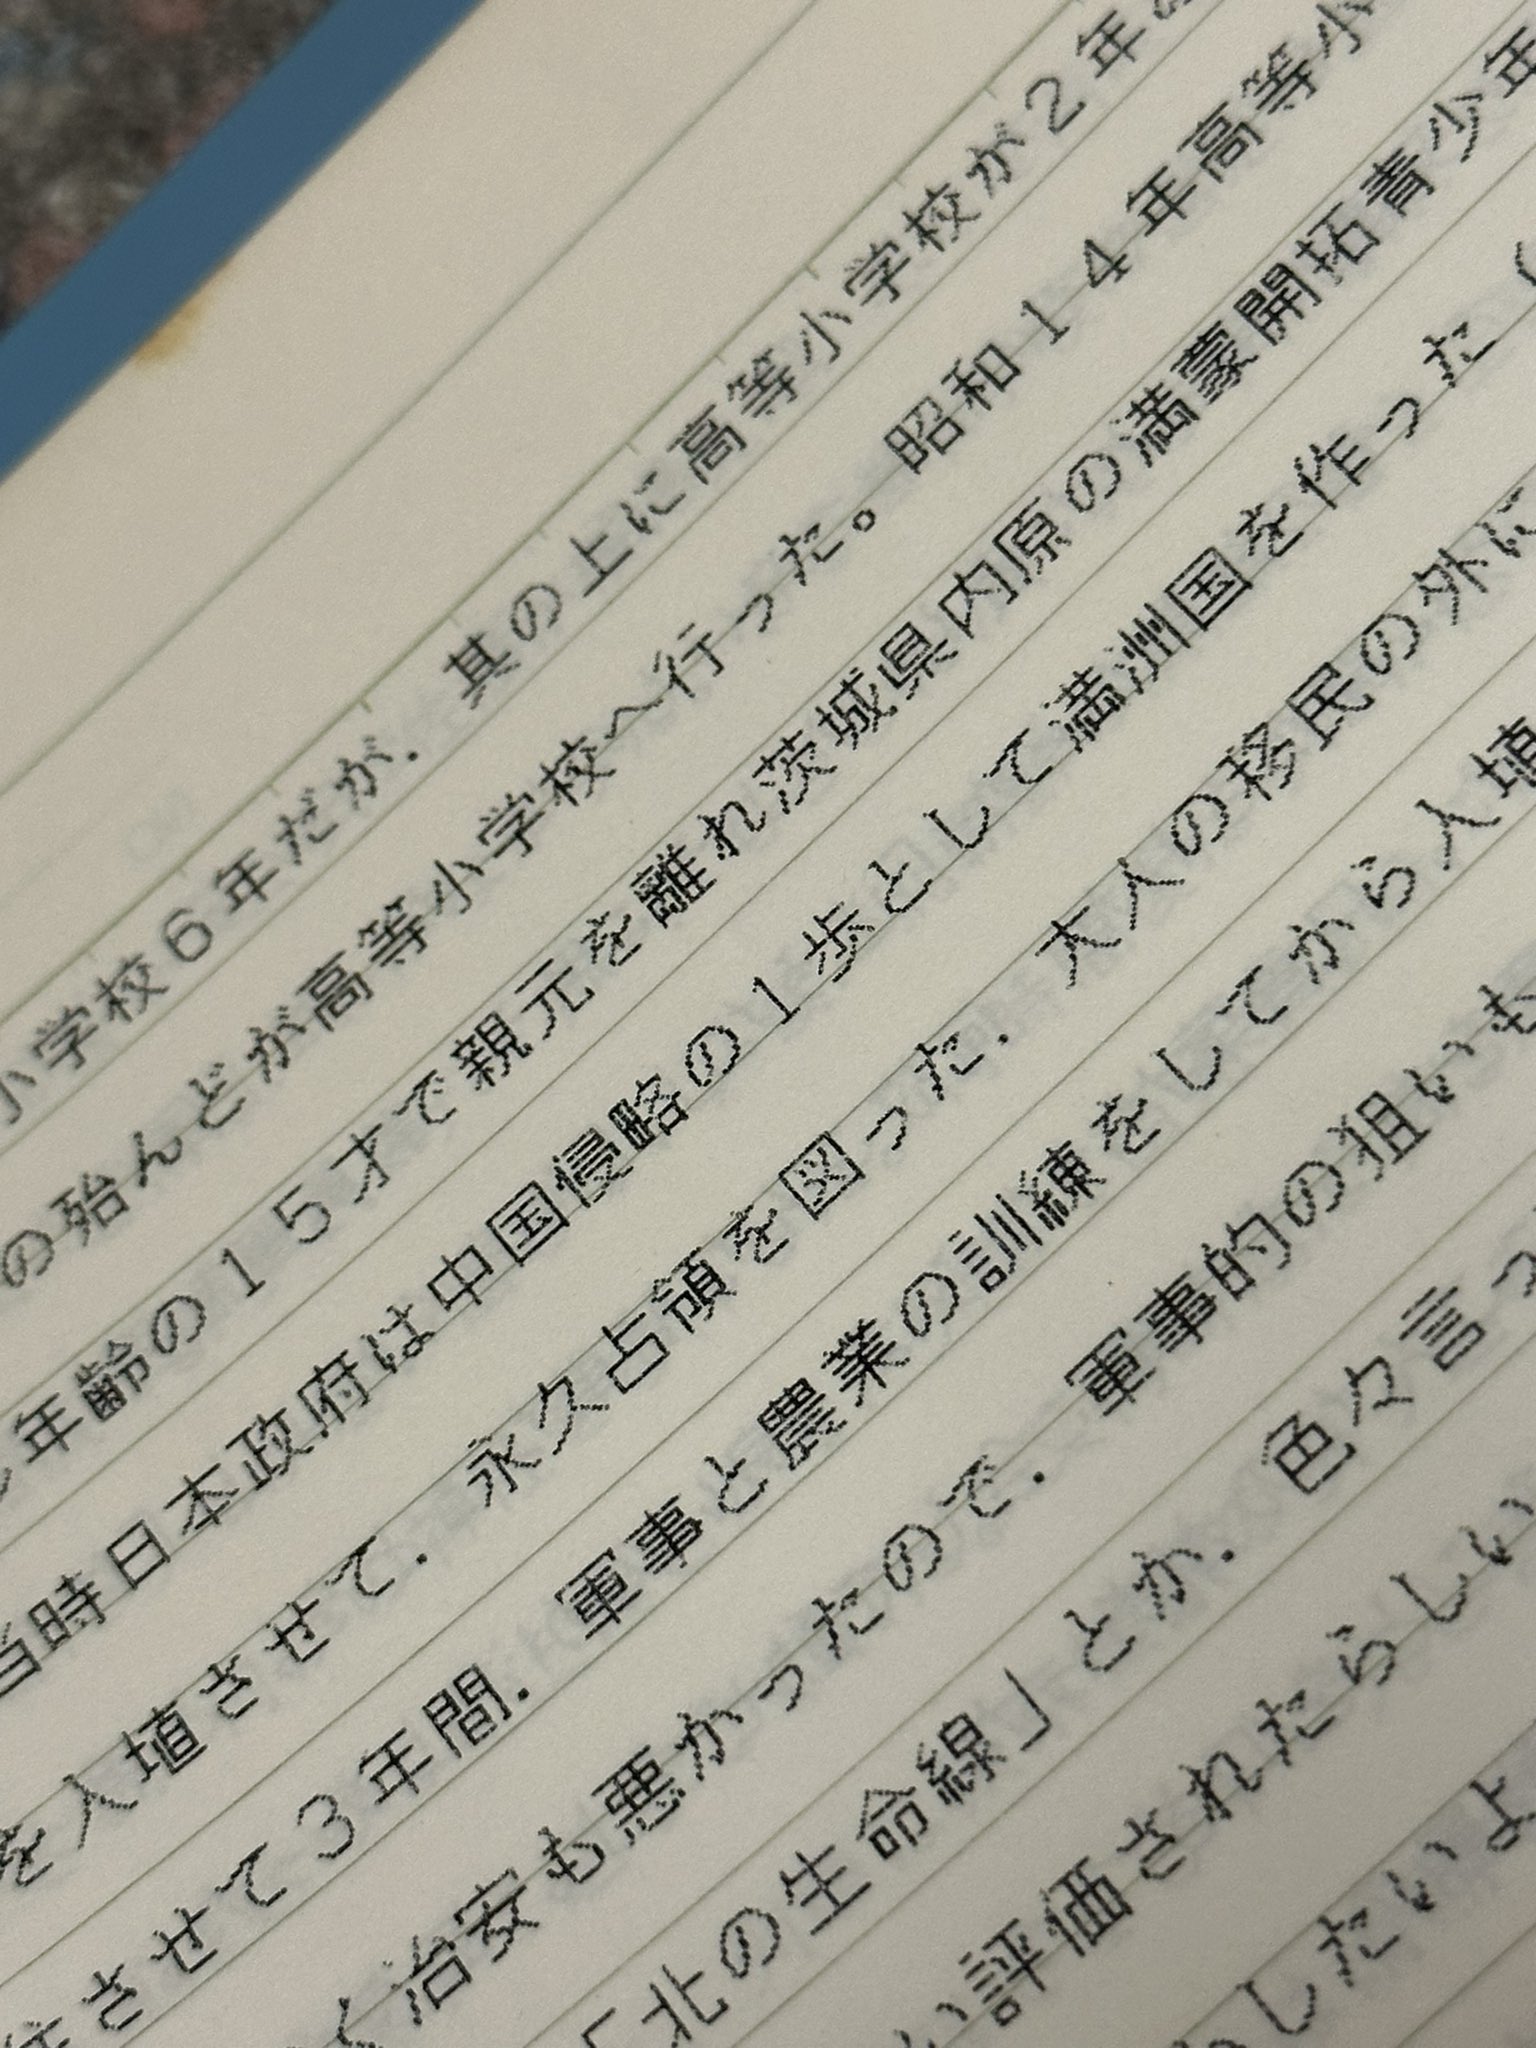 小学校6年だが．其の上に高等小学校が2年
の殆んどが高等小学校へ行った。昭和14年高等小
年齢の15才で親元を離れ茨城県内原の満蒙開拓青少年
当時日本政府は中国侵略の1歩として満洲国を作った
を入埴させて．永久占領を図った．大人の移民の外に
させて3年間．軍事と農業の訓練をしてから入埴
く治安も悪かったので．軍事的の狙いも
「北の生命線」とか．色々言っ
い評価されたらしい
したいよ